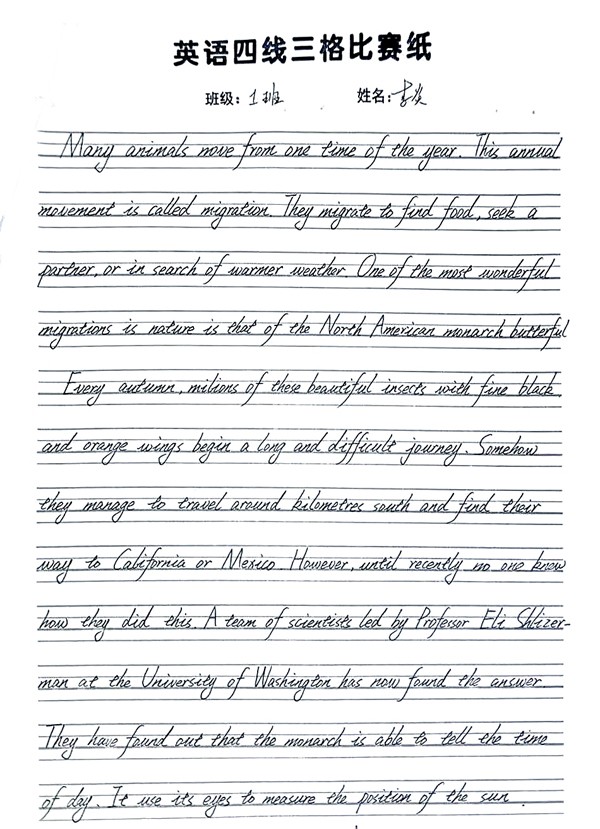 英语四线三格比赛纸
班级：1班 姓名：李炎
Many animals move from one time of the year. This annual
movement is called migration. They migrate to find food, seek a
partner, or in search of warmer weather. One of the most wonderful
migrations is nature is that of the North American monarch butterful
Every autumn, milions of these beautiful insects with fine black
and orange wings begin a long and difficult journey. Somehow
they manage to travel around kilometres south and find their
way to California or Mexico. However, until recently no one knew
how they did this. A team of scientists led by Professor Eli Shlizer-
man at the University of Washington has now found the answer.
They have found out that the monarch is able to tell the time
of day. It use its eyes to measure the position of the sun.